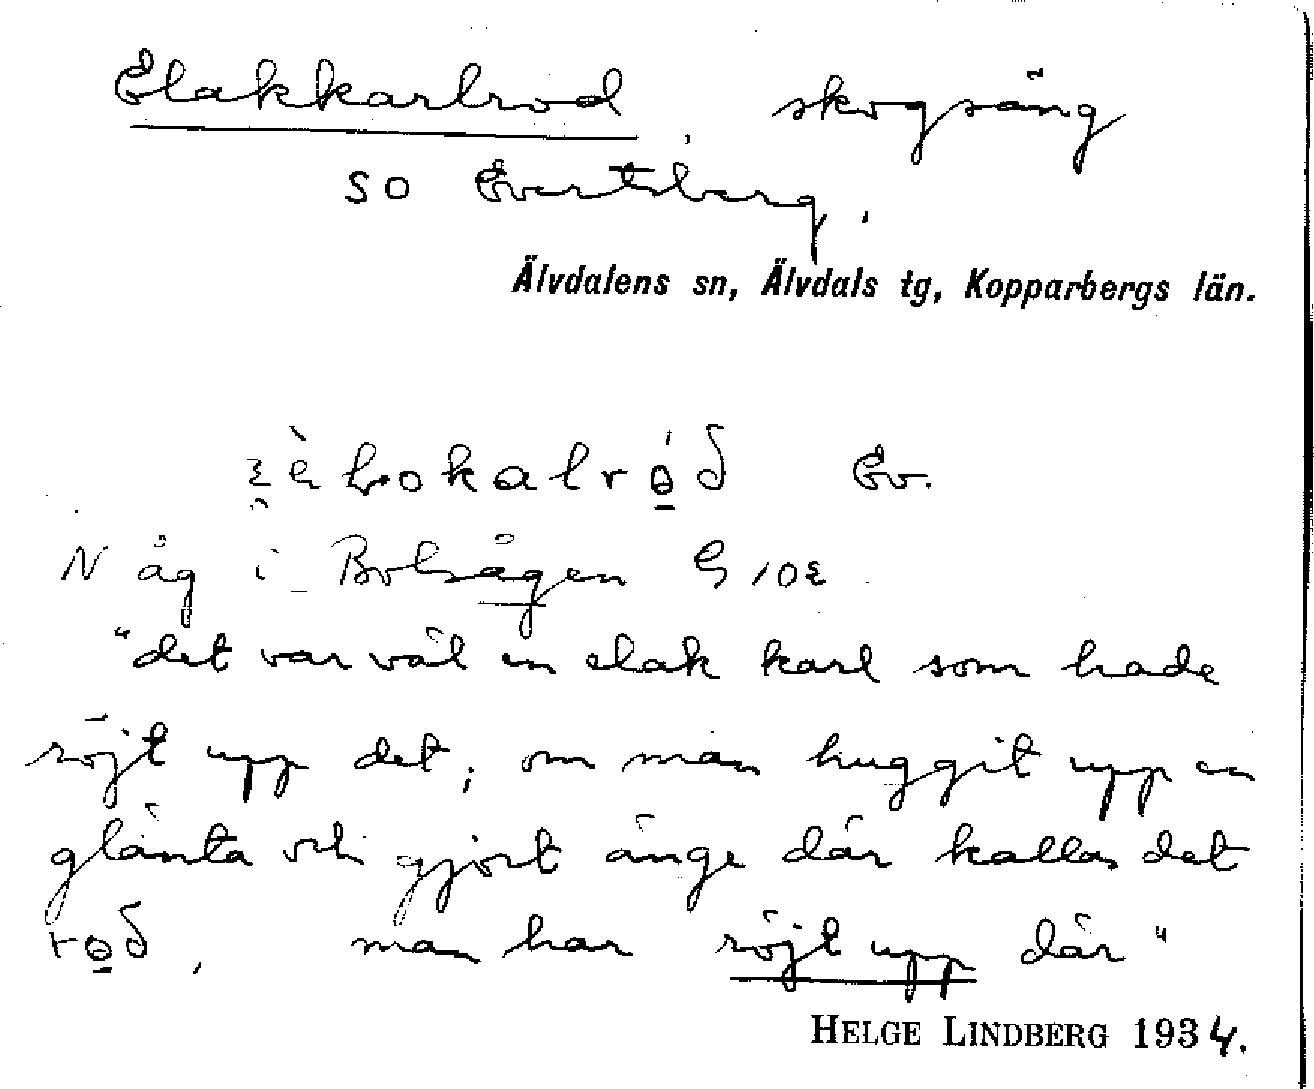 Elakkarlrod, skogsäng
SO Evertsberg.
Älvdalens sn, Älvdals tg, Kopparbergs län.
Ev.
N äg i Bolsågen
"det var väl en elak karl som hade
röjt upp det; om man huggit upp en
glänta och gjort änge där kallas det
rọð, man har röjt upp där"
HELGE LINDBERG 1934.